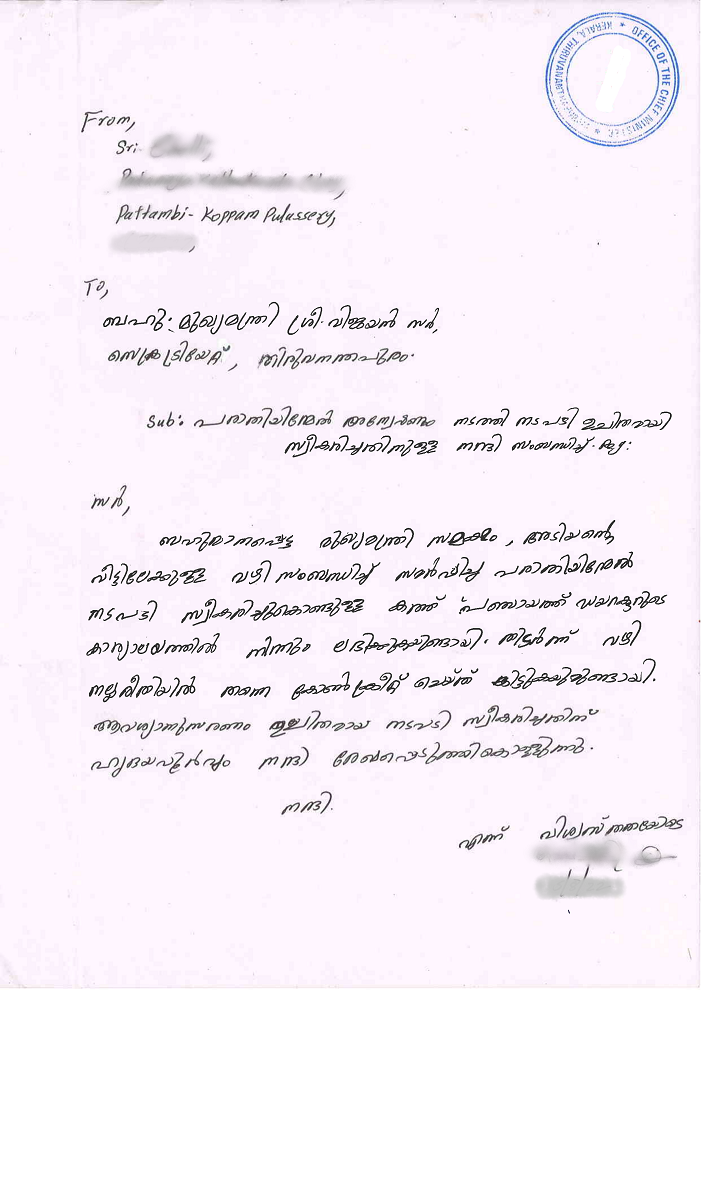 OFFICE OF THE CHIEF MINISTER * KERALA, *
From,
Sri.
Pattambi - Koppam Pulassery,
To,
ബഹു: മുഖ്യമന്ത്രി ശ്രീ. വിജയൻ സർ,
സെക്രട്ടിയേറ്റ്, തിരുവനന്തപുരം.
Sub: പരാതിയിന്മേൽ അന്വേഷണം നടത്തി നടപടി ഉചിതമായി
സ്വീകരിച്ചതിനുള്ള നന്ദി സംബന്ധിച്ച്.
സർ,
ബഹുമാനപ്പെട്ട മുഖ്യമന്ത്രി സമക്ഷം, അടിയന്റെ
വീട്ടിലേക്കുള്ള വഴി സംബന്ധിച്ച് സമർപ്പിച്ച പരാതിയിന്മേൽ
നടപടി സ്വീകരിച്ചുകൊണ്ടുള്ള കത്ത് പഞ്ചായത്ത് ഡയറക്ടറുടെ
കാര്യാലയത്തിൽ നിന്നും ലഭിക്കുകയുണ്ടായി. തുടർന്ന് വഴി
നല്ലരീതിയിൽ തന്നെ കോൺക്രീറ്റ് ചെയ്ത് കിട്ടുകയുമുണ്ടായി.
ആവശ്യാനുസരണം ഉചിതമായ നടപടി സ്വീകരിച്ചതിന്
ഹൃദയപൂർവ്വം നന്ദി രേഖപ്പെടുത്തികൊള്ളുന്നു.
നന്ദി.
എന്ന് വിശ്വസ്തതയോടെ